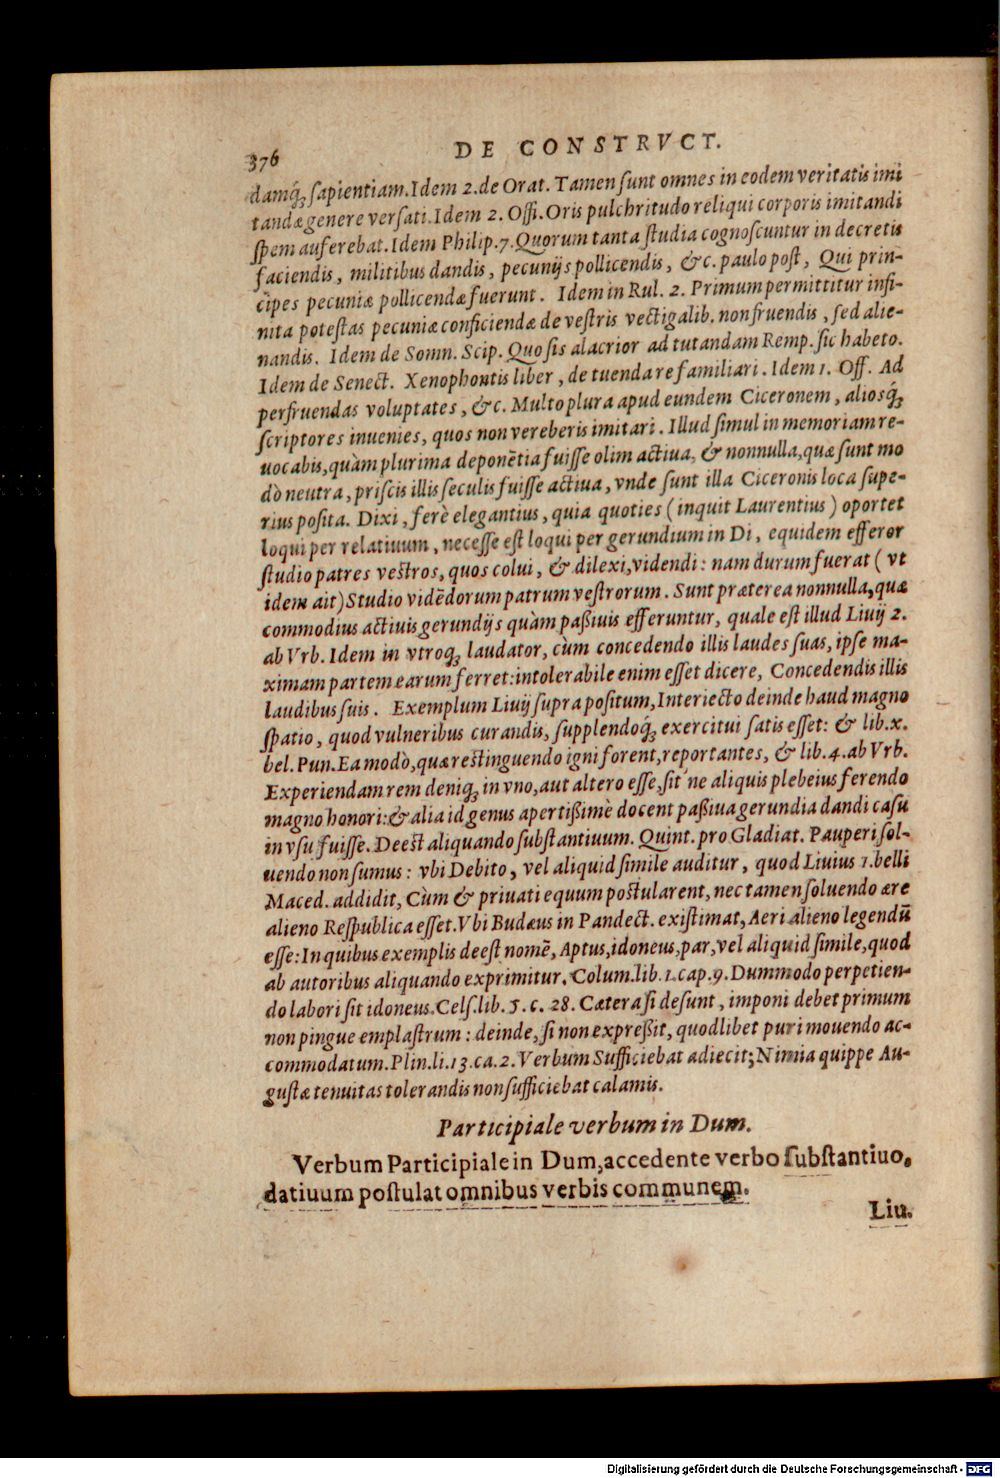 376 DE CONSTRVCT.
damq́ʒ ſapientiam. Idem 2. de Orat. Tamen ſunt omnes in eodem veritatis imi
tandæ genere verſati. Idem 2. Offi. Oris pulchritudo reliqui corporis imitandi
ſpem auferebat. Idem Philip. 7. Quorum tanta ſtudia cognoſcuntur in decretis
faciendis, militibus dandis, pecunijs pollicendis, &c. paulo poſt, Qui prin-
cipes pecuniæ pollicendæ fuerunt. Idem in Rul. 2. Primum permittitur infi-
nita poteſtas pecuniæ conficiendæ de veſtris vectigalib. non fruendis, ſed alie-
nandis. Idem de Somn. Scip. Quo ſis alacrior ad tutandam Remp. ſic habeto.
Idem de Senect. Xenophontis liber, de tuenda re familiari. Idem 1. Off. Ad
perfruendas voluptates, &c. Multo plura apud eundem Ciceronem, aliosq́ʒ
ſcriptores inuenies, quos non vereberis imitari. Illud ſimul in memoriam re-
uocabis, quàm plurima deponẽtia fuiſſe olim actiua, & nonnulla, quæ ſunt mo
dò neutra, priſcis illis ſeculis fuiſſe actiua, vnde ſunt illa Ciceronis loca ſupe-
rius poſita. Dixi, ferè elegantius, quia quoties (inquit Laurentius) oportet
loqui per relatiuum, neceſſe eſt loqui per gerundium in Di, equidem efferor
ſtudio patres veſtros, quos colui, & dilexi, videndi: nam durum fuerat (vt
idem ait) Studio vidẽdorum patrum veſtrorum. Sunt præterea nonnulla, quæ
commodius actiuis gerundijs quàm paßiuis efferuntur, quale eſt illud Liuij 2.
ab Vrb. Idem in vtroqʒ laudator, cùm concedendo illis laudes ſuas, ipſe ma-
ximam partem earum ferret: intolerabile enim eſſet dicere, Concedendis illis
laudibus ſuis. Exemplum Liuij ſupra poſitum, Interiecto deinde haud magno
ſpatio, quod vulneribus curandis, ſupplendoq́ʒ exercitui ſatis eſſet: & lib. x.
bel. Pun. Ea modò, quæ reſtinguendo igni forent, reportantes, & lib. 4. ab Vrb.
Experiendam rem deniqʒ in vno, aut altero eſſe, ſit ne aliquis plebeius ferendo
magno honori: & alia id genus apertißimè docent paßiua gerundia dandi caſu
in vſu fuiſſe. Deeſt aliquando ſubſtantiuum. Quint. pro Gladiat. Pauperi ſol-
uendo non ſumus: vbi Debito, vel aliquid ſimile auditur, quod Liuius 1. belli
Maced. addidit, Cùm & priuati equum poſtularent, nec tamen ſoluendo ære
alieno Reſpublica eſſet. Vbi Budæus in Pandect. exiſtimat, Aeri alieno legendũ
eſſe: In quibus exemplis deeſt nomẽ, Aptus, idoneus, par, vel aliquid ſimile, quod
ab autoribus aliquando exprimitur. Colum. lib. 1. cap. 9. Dummodo perpetien-
do labori ſit idoneus. Celſ. lib. 5. c. 28. Cætera ſi deſunt, imponi debet primum
non pingue emplaſtrum: deinde, ſi non expreßit, quodlibet puri mouendo ac-
commodatum. Plin. li. 13. ca. 2. Verbum Sufficiebat adiecit; Nimia quippe Au-
guſtæ tenuitas tolerandis non ſufficiebat calamis.
Participiale verbum in Dum.
Verbum Participiale in Dum, accedente verbo ſubſtantiuo,
datiuum poſtulat omnibus verbis communem.
Liu.
Digitalisierung gefördert durch die Deutsche Forschungsgemeinschaft - DFG